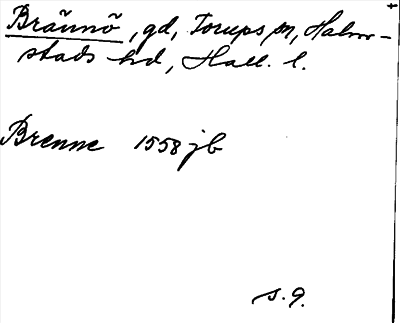 Brännö, gd, Torups sn, Halm-
stads hd, Hall. l.
Brenne 1558 jb
s. 9.